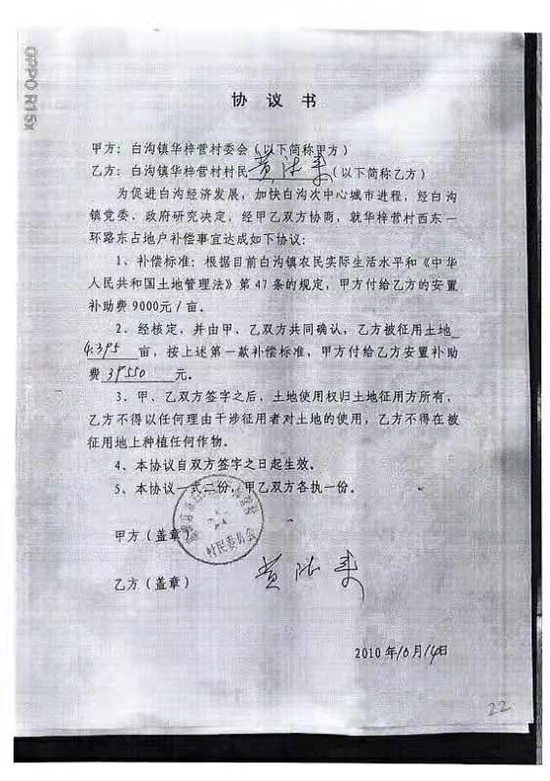 OPPO R15x
协 议 书
甲方：白沟镇华梓营村委会（以下简称甲方）
乙方：白沟镇华梓营村村民黄（以下简称乙方）
为促进白沟经济发展，加快白沟次中心城市进程，经白沟
镇党委、政府研究决定，经甲乙双方协商，就华梓营村西东一
环路东占地户补偿事宜达成如下协议：
1、补偿标准：根据目前白沟镇农民实际生活水平和《中华
人民共和国土地管理法》第 47 条的规定，甲方付给乙方的安置
补助费 9000元／亩。
2、经核定，并由甲、乙双方共同确认，乙方被征用土地
4.395 亩，按上述第一款补偿标准，甲方付给乙方安置补助
费 39550 元。
3、甲、乙双方签字之后，土地使用权归土地征用方所有，
乙方不得以任何理由干涉征用者对土地的使用，乙方不得在被
征用地上种植任何作物。
4、本协议自双方签字之日起生效。
5、本协议一式二份，甲乙双方各执一份。
甲方（盖章）
村民委员会
乙方（盖章）
黄
2010 年10月14日
22